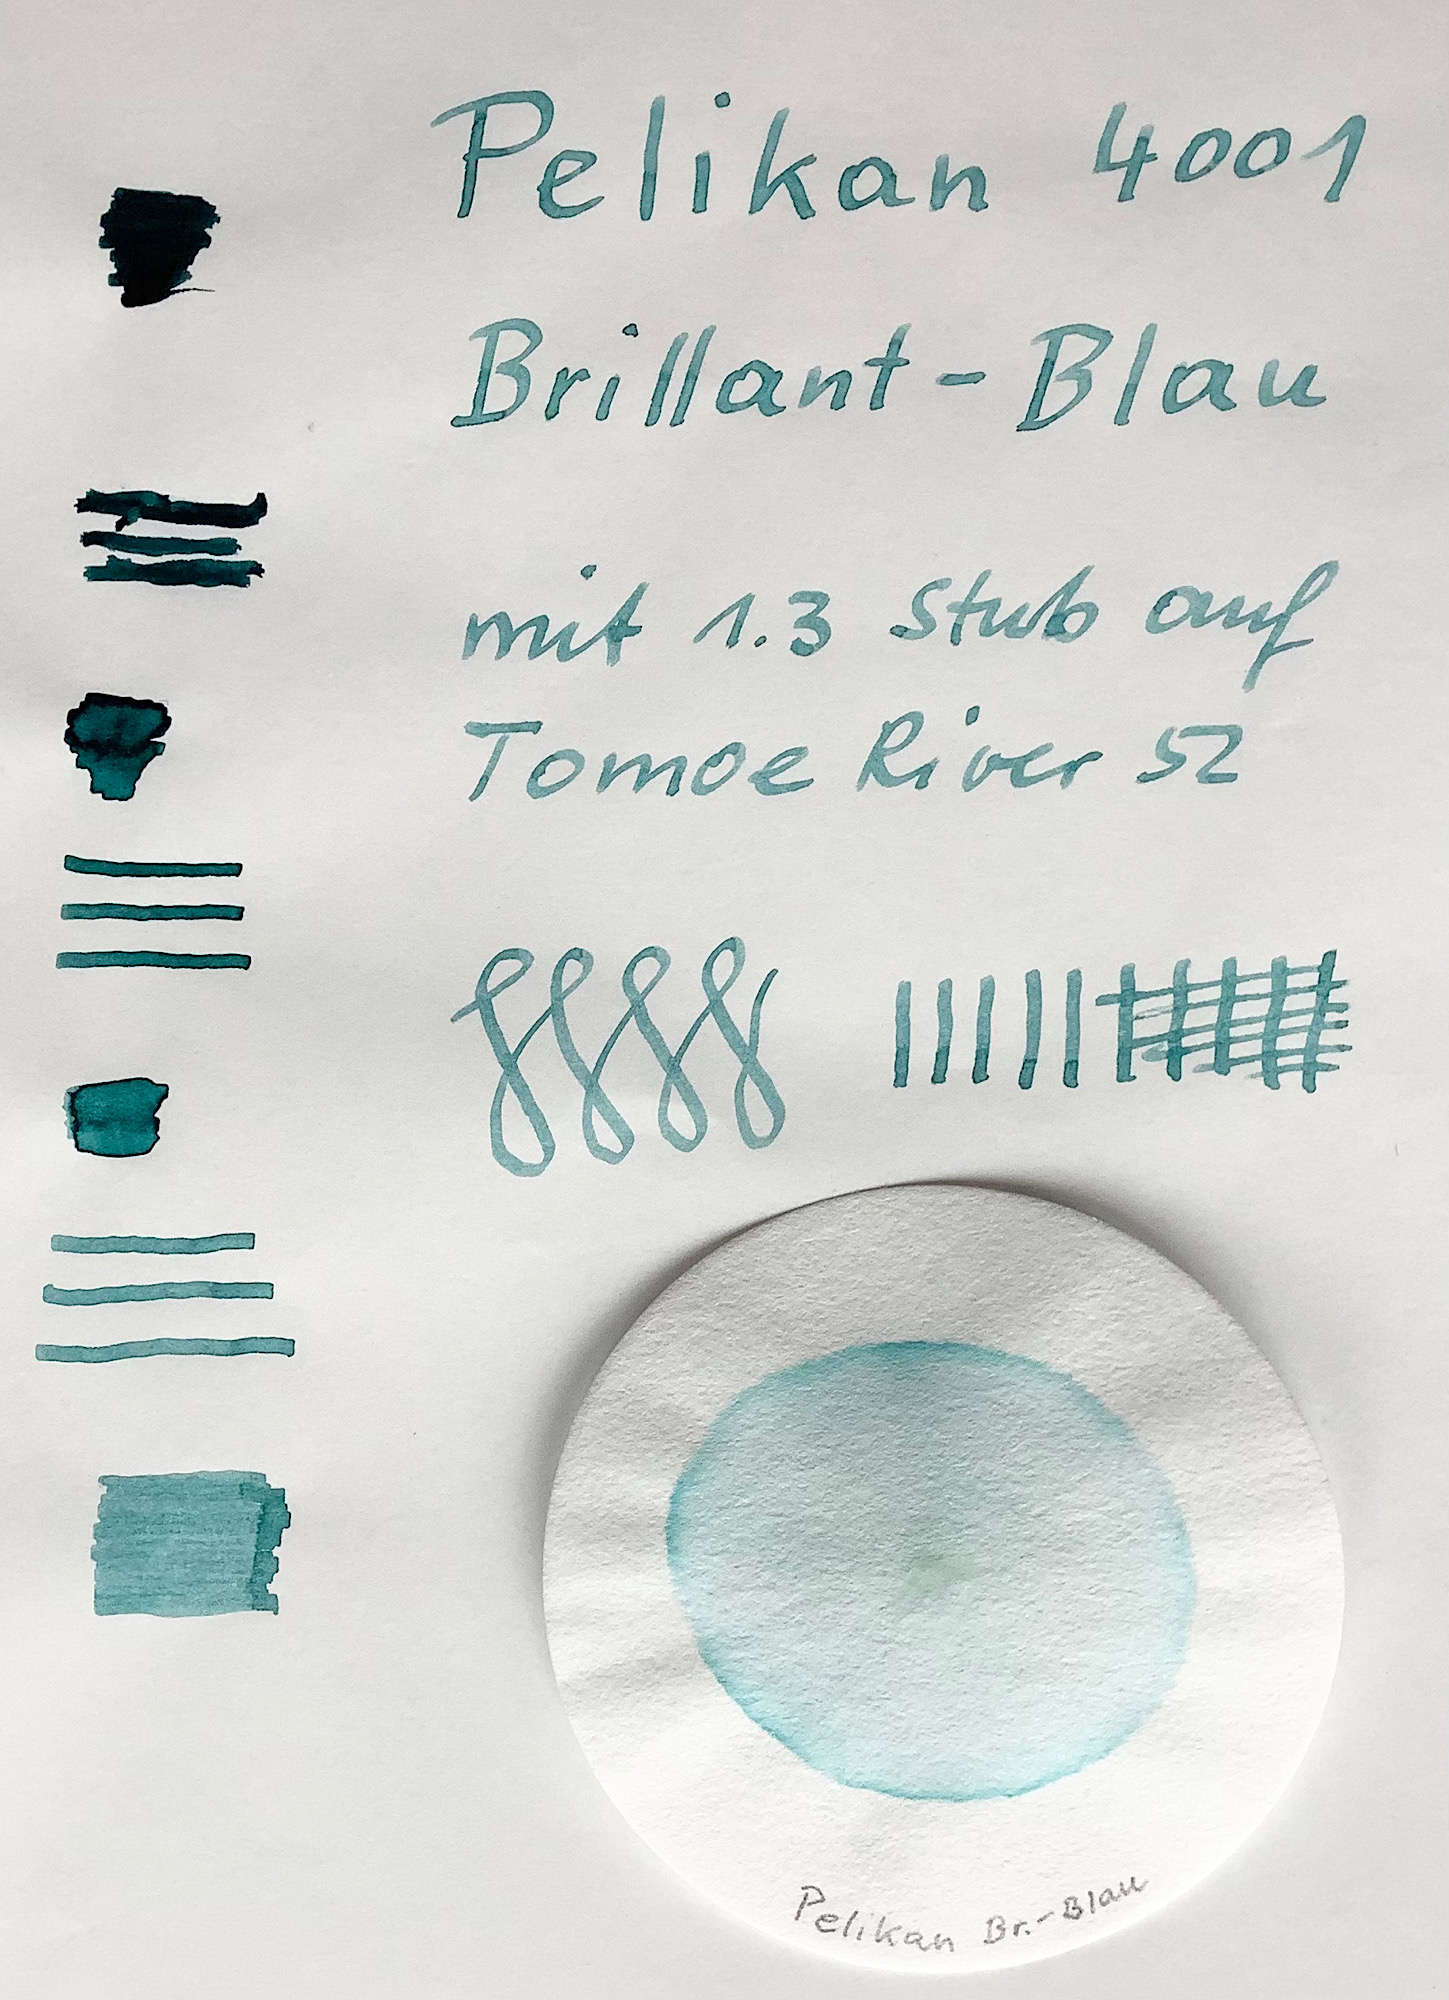 Pelikan 4001
Brillant-Blau
mit 1.3 Stub auf
Tomoe River 52
Pelikan Br.-Blau